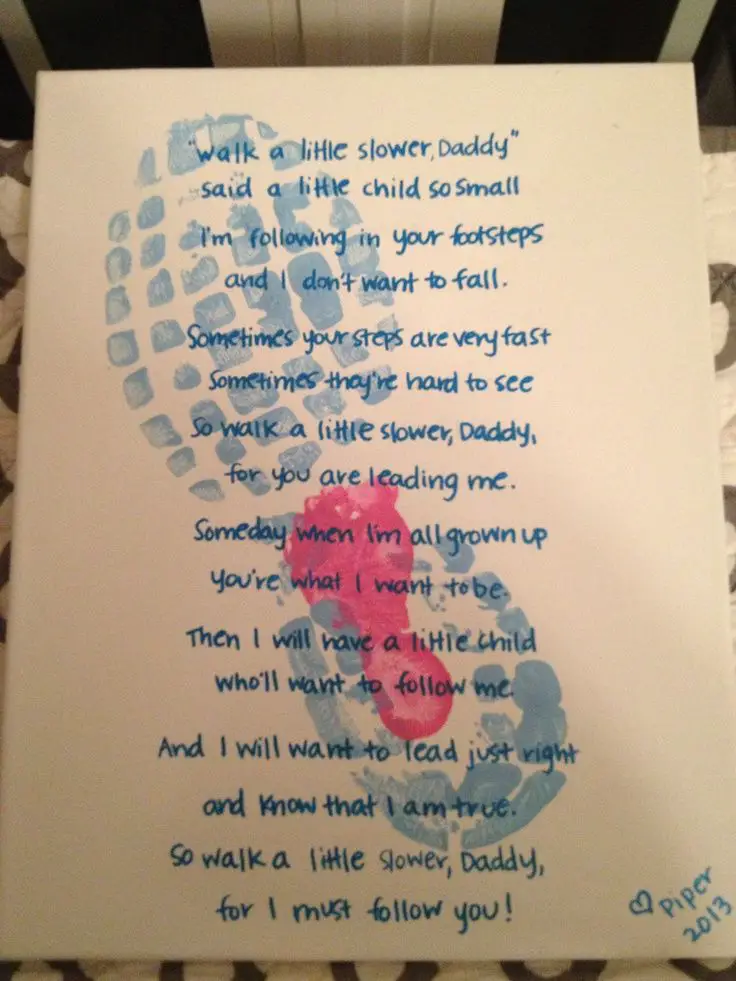 "Walk a little slower, Daddy"
said a little child so small
I'm following in your footsteps
and I don't want to fall.
Sometimes your steps are very fast
Sometimes they're hard to see
So walk a little slower, Daddy,
for you are leading me.
Someday when I'm all grown up
you're what I want to be.
Then I will have a little child
who'll want to follow me.
And I will want to lead just right
and know that I am true.
So walk a little slower, Daddy,
for I must follow you!
♡ Piper
2013